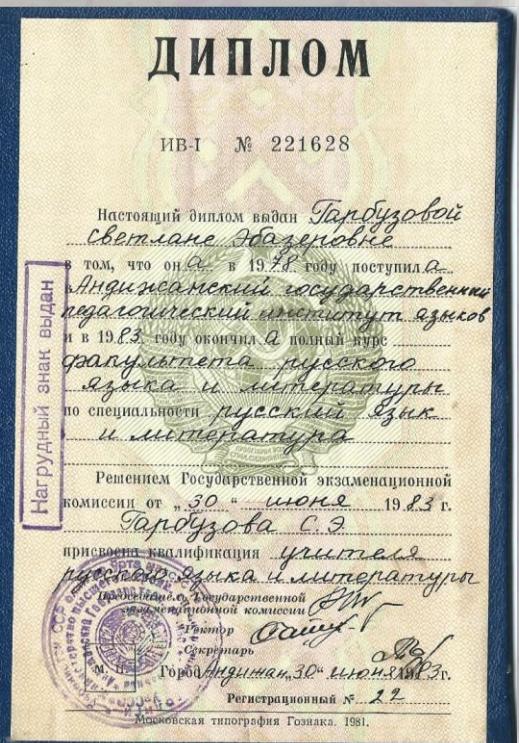 ДИПЛОМ
ИВ-I № 221628
Настоящий диплом выдан Гарбузовой
Светлане Эбазеровне
в том, что он а в 1978 году поступил а
в Андижанский государственный
педагогический институт языков
и в 1983 году окончил а полный курс
факультета русского
языка и литературы
по специальности русский язык
и литература
Решением Государственной экзаменационной
комиссии от „30“ июня 1983 г.
Гарбузова С. Э.
присвоена квалификация учителя
русского языка и литературы
Председатель Государственной
экзаменационной комиссии
Ректор
Секретарь
М. П. Город Андижан „30“ июня 1983 г.
Регистрационный № 22
Московская типография Гознака. 1981.
Нагрудный знак выдан